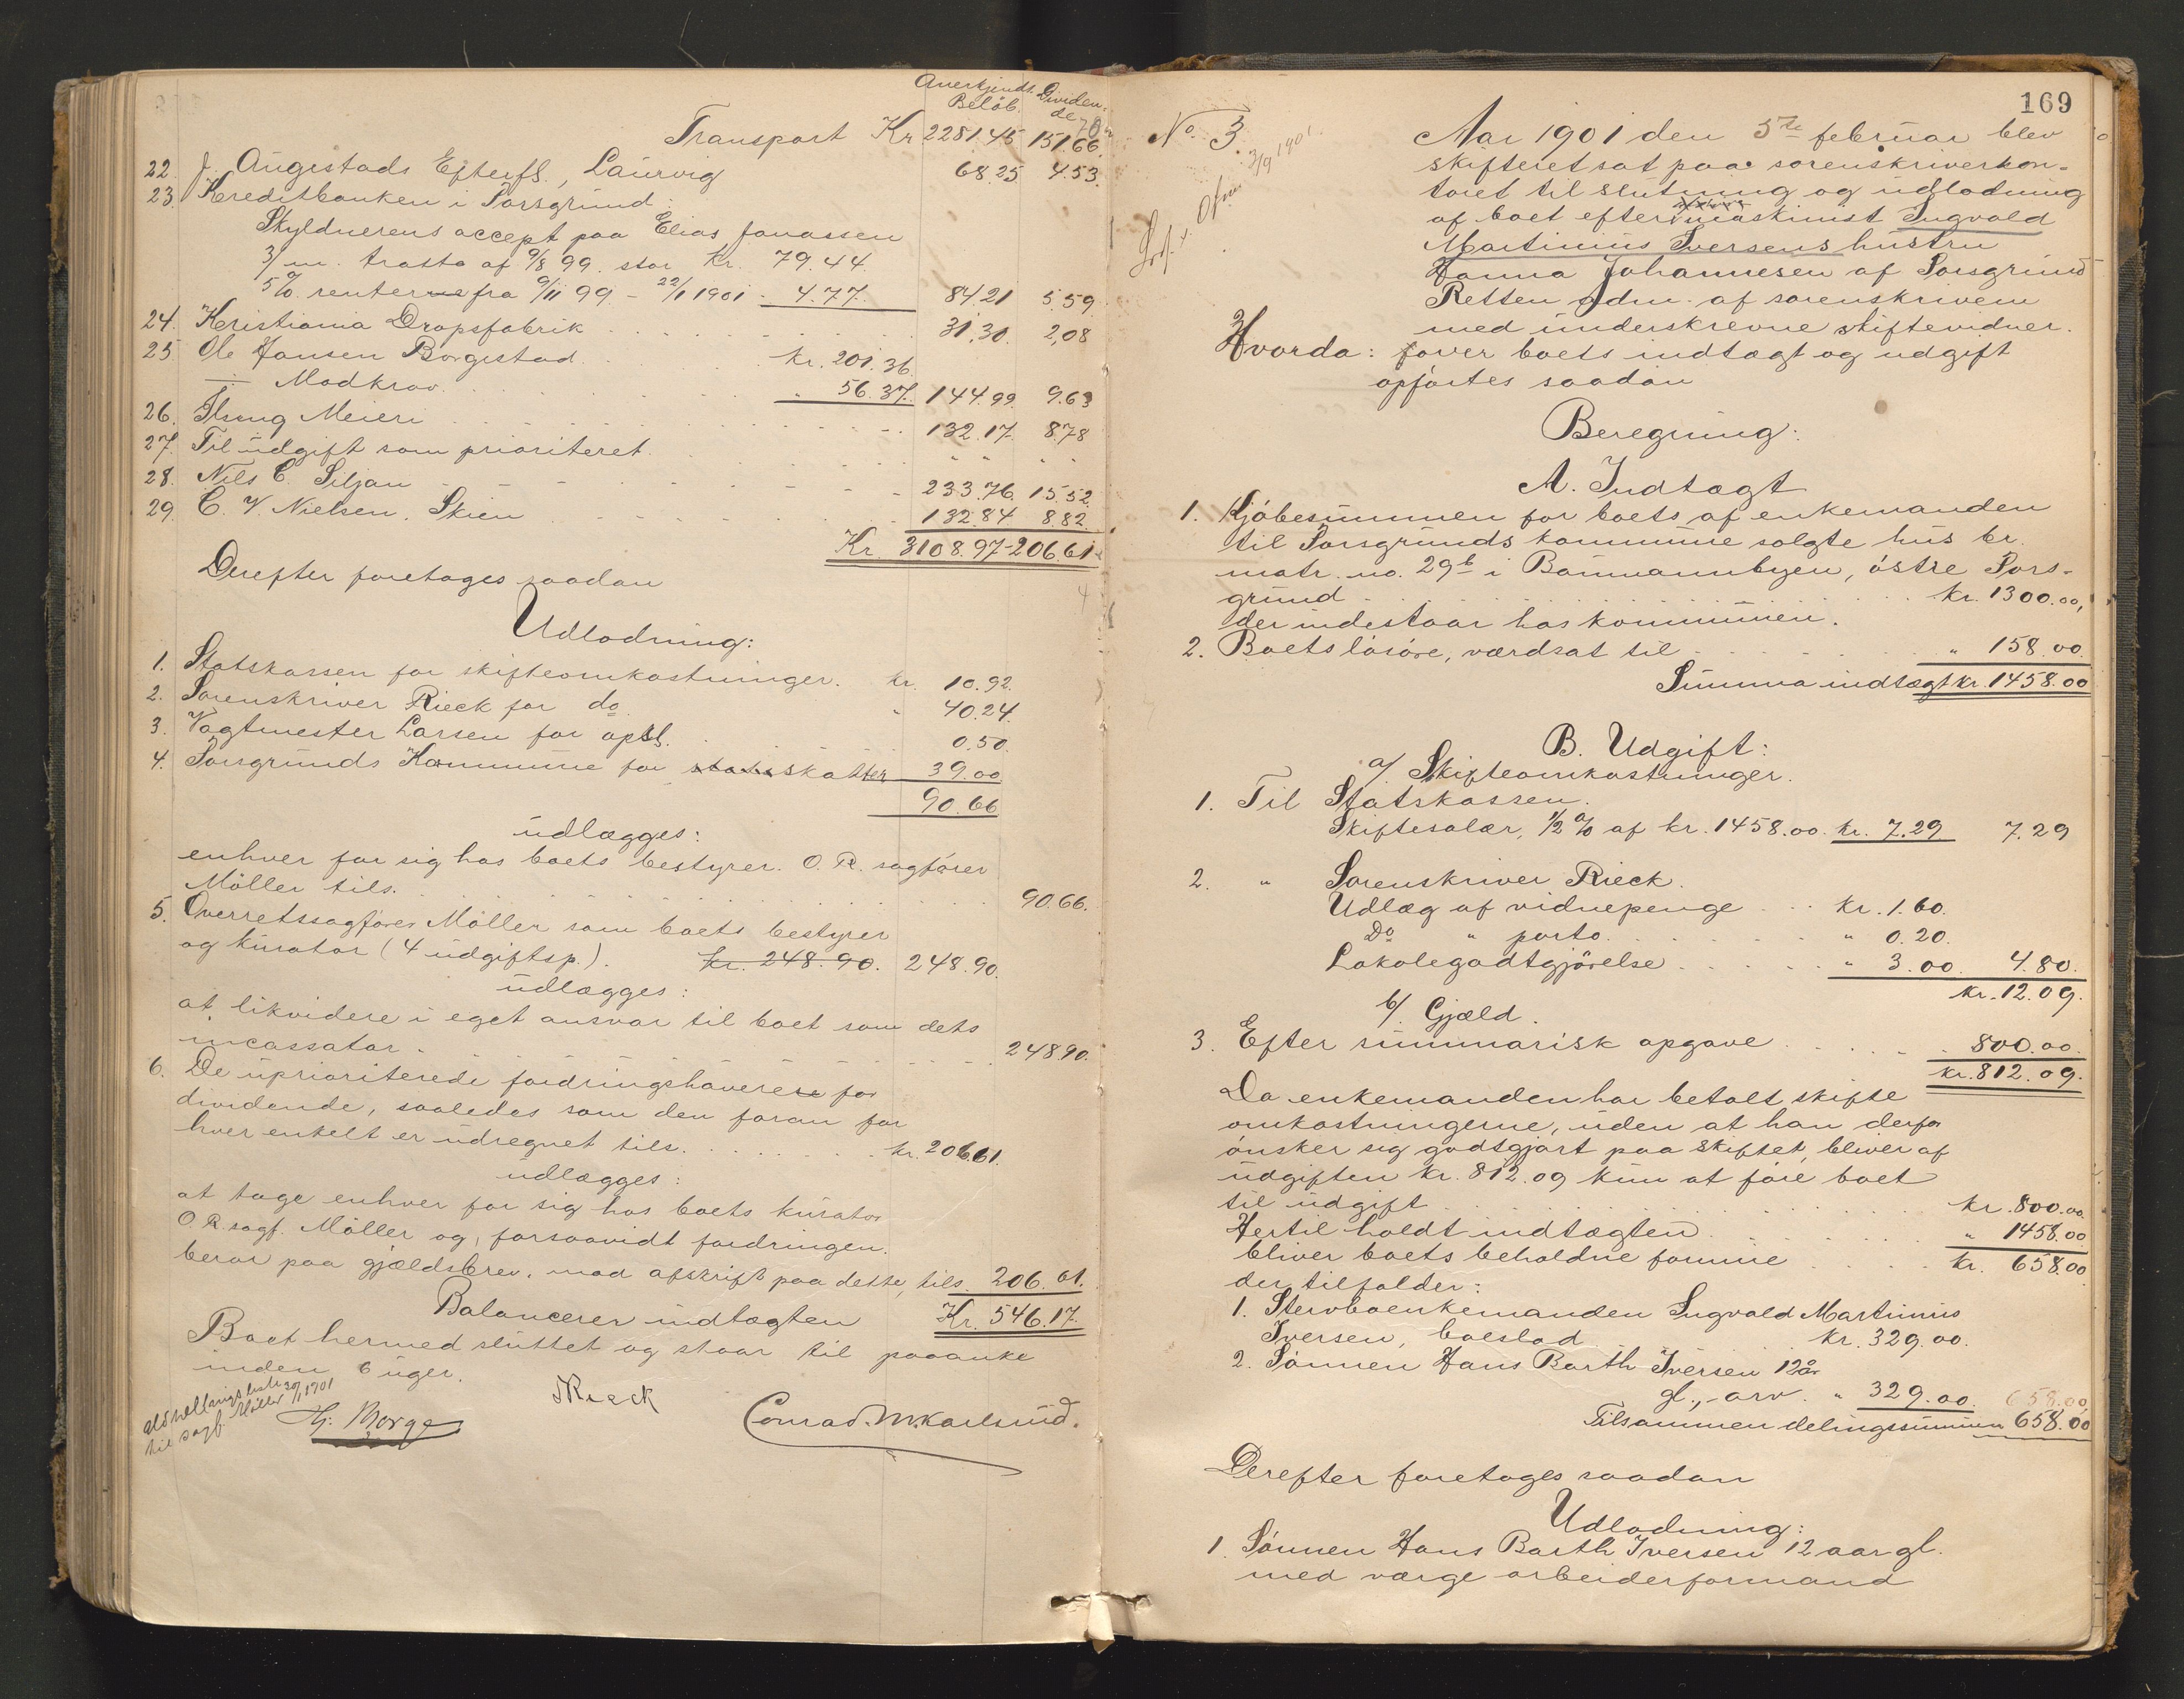 Anerkjendt Dividen-
Beløb. de
Transport Kr 2281.45 151.66
22. J. Augestads Efterfl., Laurvig 68.25 4.53.
23. Kreditbanken i Porsgrund:
Skyldnerens accept paa Elias Jonassen
3/m. tratta af 9/8 99. stor Kr. 79.44.
5% renter fra 9/11 99 - 22/1 1901 - 4.77. 84.21 5.59
24. Kristiania Dropsfabrik 31.30. 2,08
25 Ole Hansen Borgestad. Kr. 201.36.
÷ Modkrav. " 56.37. 144.99. 9.63
26. Thung Meieri 132.17. 8.78
27. Til udgift som prioriteret. " " " "
28. Nils C. Siljan 233.76. 15.52.
29. C. W. Nielsen, Skien 132.84 8.82.
Kr. 3108.97 - 206.61
Derefter foretages saadan
Udlodning:
1. Statskassen for skifteomkostninger. kr. 10.92.
2. Sorenskriver Rieck for do. " 40.24.
3. Vagtmester Larsen for opsl. 0.50.
4. Porsgrunds Kommune for stats skatter 39.00
90.66
udlægges:
enhver for sig hos boets bestyrer. O.R. sagfører
Møller tils. 90.66.
5. Overretssagfører Møller som boets bestyrer
og kurator (4 udgiftsp.). Kr. 248.90. 248.90.
udlægges:
at likvidere i eget ansvar til boet som dets
incassator. 248.90.
6. De uprioriterede fordringshavere for
dividende, saaledes som den foran for
hver enkelt er udregnet tils. kr. 206.61.
udlægges:
at tage enhver for sig hos boets kurator
O.R.sagf. Møller og, forsaavidt fordringen
beror paa gjældsbrev, mod afskrift paa dette, tils. 206.61.
Balancerer indtægten Kr. 546.17.
Boet hermed sluttet og staar til paaanke
inden 6 uger.
til sagf. Møller 1901
H. Borge Rieck Conrad M. Karlsrud.
169
No. 3.
2/9 1901.
Aar 1901 den 5te februar blev
skifteret sat paa sorenskriverkon-
toret til slutning og udlodning
af boet efter maskinist Ingvald
Martinius Iversens hustru
Hanna Johannesen af Porsgrund
Retten adm. af sorenskriveren
med underskrevne skiftevidner.
Hvorda: over boets indtægt og udgift
opførtes saadan
Beregning:
A. Indtægt
1. Kjøbesummen for boets af enkemanden
til Porsgrunds kommune solgte hus br.
matr. no. 29b i Baumannbyen, østre Pors-
grund kr. 1300.00,
der indestaar hos kommunen.
2. Boets løsøre, værdsat til " 158.00.
Summa indtægt kr. 1458.00
B. Udgift:
a/ Skifteomkostninger.
1. Til Statskassen.
Skiftesalær, 1/2 % af kr. 1458.00. kr. 7.29 7.29
2. " Sorenskriver Rieck.
Udlæg af vidnepenge kr. 1.60.
Do " porto. " 0.20.
Lokalegodtgjørelse " 3.00. 4.80.
kr. 12.09.
b/. Gjæld.
3. Efter summarisk opgave 800.00.
kr. 812.09.
Da enkemanden har betalt skifte
omkostningerne, uden at han derfor
ønsker sig godtgjort paa skiftet, bliver af
udgiften kr. 812.09 kun at føre boet
til udgift kr. 800.00.
Hertil holdt indtægten " 1458.00
bliver boets beholdne formue kr. 658.00.
der tilfalder:
1. Stervboenkemanden Ingvald Martinius
Iversen, boeslod kr. 329.00.
2. Sønnen Hans Barth Iversen 12 år
gl., - arv. " 329.00. 658.00,
Tilsammen delingssummen 658.00
Derefter foretages saadan
Udlodning:
1. Sønnen Hans Barth Iversen 12 aar gl.
med værge arbeiderformand